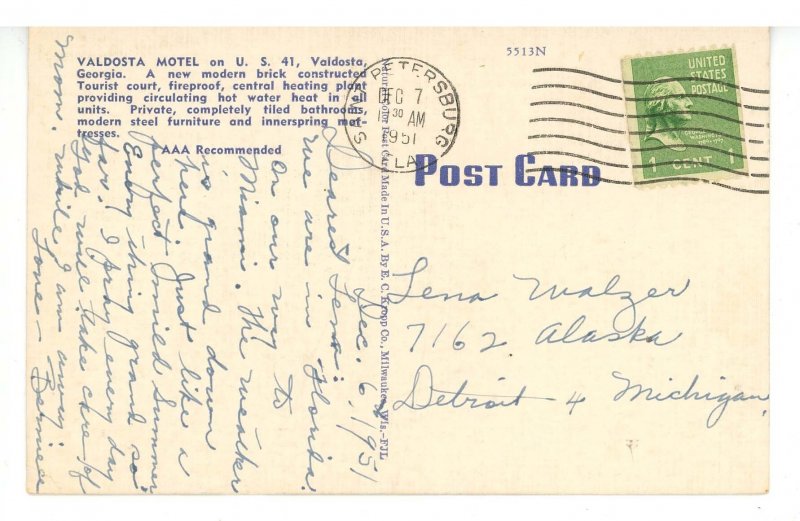 VALDOSTA MOTEL on U. S. 41, Valdosta,
Georgia. A new modern brick constructed
Tourist court, fireproof, central heating plant
providing circulating hot water heat in all
units. Private, completely tiled bathrooms,
modern steel furniture and innerspring mat-
tresses.
AAA Recommended
5513N
ST. PETERSBURG
DEC 7
30 AM
1951
FLA.
UNITED
STATES
POSTAGE
1 CENT 1
POST CARD
Natural Color Post Card Made In U.S.A. By E. C. Kropp Co., Milwaukee, Wis.-FJL
Dec. 6, 1951
Dearest Lena:
we are in Florida
on our way to
Miami. The weather
is grand down
here. Just like a
perfect mild summer
Every thing grand so
far. I pray every day
God will take care of
Mom. while I am away.
Love - Bernice
Lena Walzer
7162 Alaska
Detroit 4 Michigan